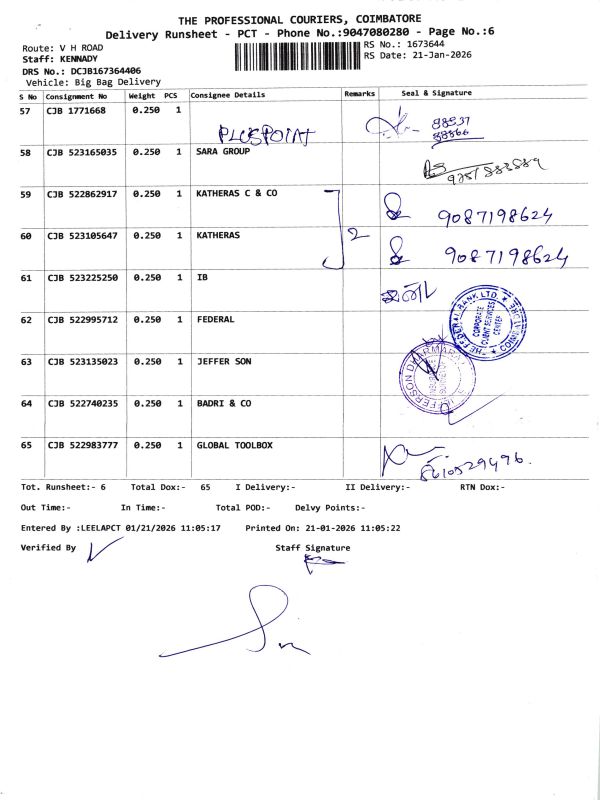 THE PROFESSIONAL COURIERS, COIMBATORE
Delivery Runsheet - PCT - Phone No.:9047080280 - Page No.:6
Route: V H ROAD
RS No.: 1673644
Staff: KENNADY
RS Date: 21-Jan-2026
DRS No.: DCJB167364406
Vehicle: Big Bag Delivery
S No Consignment No Weight PCS Consignee Details Remarks Seal & Signature
57 CJB 1771668 0.250 1
PLUSPOINT
58 CJB 523165035 0.250 1 SARA GROUP
59 CJB 522862917 0.250 1 KATHERAS C & CO 9087198624
2
60 CJB 523105647 0.250 1 KATHERAS 9087198624
61 CJB 523225250 0.250 1 IB
THE FEDERAL BANK LTD. COIMBATORE
CORPORATE
CLIENT SERVICES
CENTER
62 CJB 522995712 0.250 1 FEDERAL
63 CJB 523135023 0.250 1 JEFFER SON
64 CJB 522740235 0.250 1 BADRI & CO
65 CJB 522983777 0.250 1 GLOBAL TOOLBOX
8610529496.
Tot. Runsheet:- 6 Total Dox:- 65 I Delivery:- II Delivery:- RTN Dox:-
Out Time:- In Time:- Total POD:- Delvy Points:-
Entered By :LEELAPCT 01/21/2026 11:05:17 Printed On: 21-01-2026 11:05:22
Verified By Staff Signature